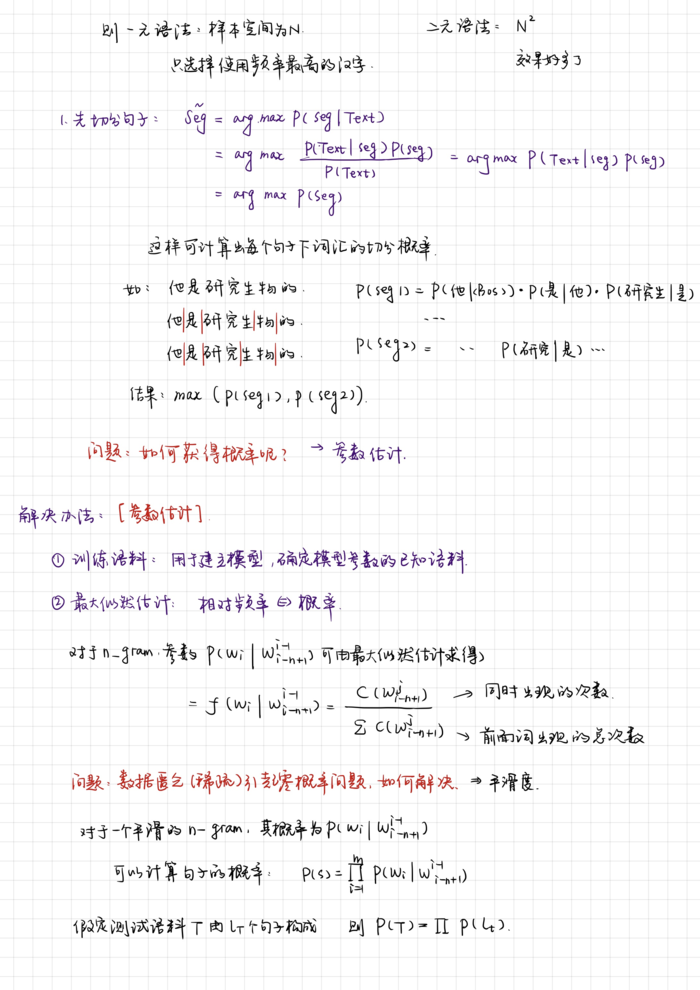 则一元语法：样本空间为N. 二元语法： N²
只选择使用频率最高的汉字. 效果好多了
1. 先切分句子： Seg̃ = arg max P(seg|Text)
= arg max P(Text|seg)P(seg) / P(Text) = argmax P(Text|seg) P(seg)
= arg max P(seg)
这样可计算出每个句子下词汇的切分概率.
如： 他是研究生物的. P(seg1) = P(他|<Bos>)·P(是|他)·P(研究生|是)
他|是|研究生|物|的. ...
他|是|研究|生物|的. P(seg2) = ·· P(研究|是) ...
结果： max (P(seg1), P(seg2)).
问题：如何获得概率呢？ → 参数估计.
解决办法：[参数估计].
① 训练语料： 用于建立模型，确定模型参数的已知语料.
② 最大似然估计： 相对频率 ⇔ 概率.
对于n-gram. 参数 P(wᵢ | w_{i-n+1}^{i-1}) 可由最大似然估计求得)
= f(wᵢ | w_{i-n+1}^{i-1}) = C(w_{i-n+1}^{i}) / Σ C(w_{i-n+1}^{i}) → 同时出现的次数.
→ 前面词出现的总次数
问题：数据匮乏(稀疏)引起零概率问题，如何解决. ⇒ 平滑度.
对于一个平滑的 n-gram，其概率为 P(wᵢ | w_{i-n+1}^{i-1})
可以计算句子的概率： P(s) = ∏_{i=1}^{m} P(wᵢ | w_{i-n+1}^{i-1})
假定测试语料 T 由 L_T 个句子构成 则 P(T) = ∏ P(L_t).